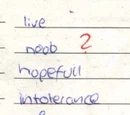 live
noob ?
hopefull
intolerance